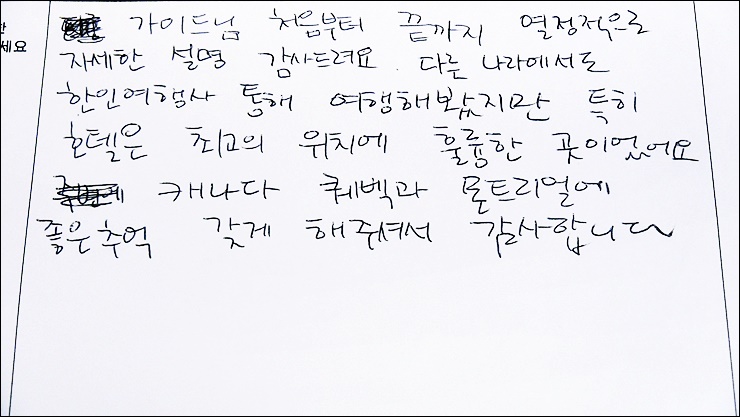 세요
가이드님 처음부터 끝까지 열정적으로
자세한 설명 감사드려요. 다른 나라에서도
한인여행사 통해 여행해봤지만 특히
호텔은 최고의 위치에 훌륭한 곳이었어요
캐나다 퀘벡과 몬트리얼에
좋은 추억 갖게 해주셔서 감사합니다